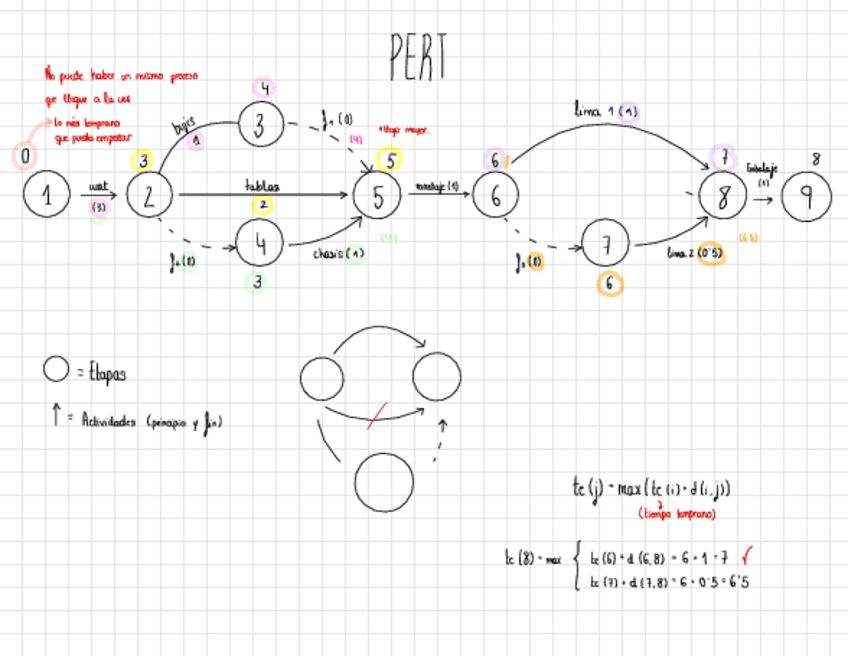 PERT
No puede haber un mismo proceso
que llegue a la vez
lo más temprano
que pueda empezar
0
1
(3)
3
2
bujes
1
4
3
f1 (0)
(4)
tablas
2
f2 (0)
4
3
chasis (1)
+ largo mayor.
5
5
(4)
montaje (1)
6
6
lima 1 (1)
f3 (0)
7
6
lima 2 (0'5)
7
8
(6'5)
Embalaje
(1)
8
9
= Etapas
↑ = Actividades (principio y fin)
te (j) = max (te (i) + d (i, j))
(tiempo temprano)
te (8) = max
te (6) + d (6,8) = 6 + 1 = 7 ✓
te (7) + d (7,8) = 6 + 0'5 = 6'5